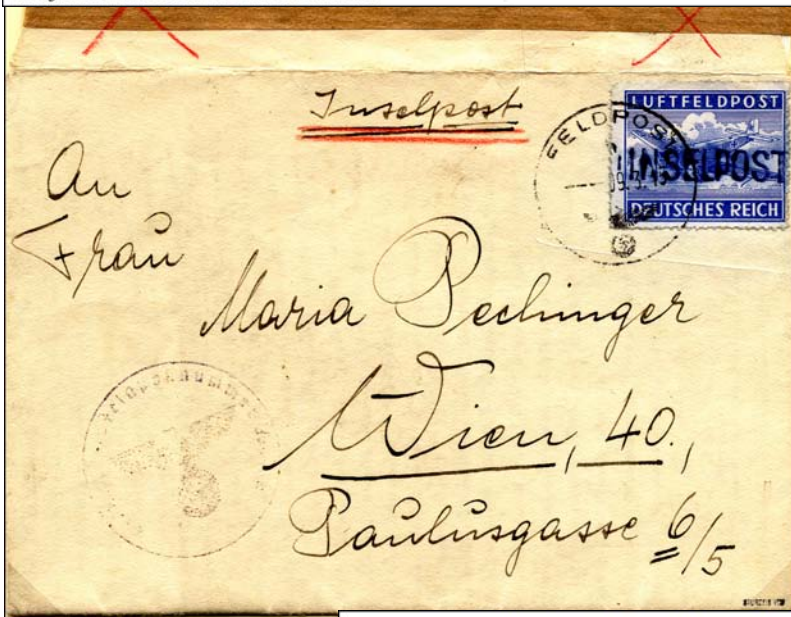 Inselpost
LUFTFELDPOST
INSELPOST
DEUTSCHES REICH
FELDPOST
An
Frau
Maria Pechinger
Wien, 40.,
Paulusgasse 6/5